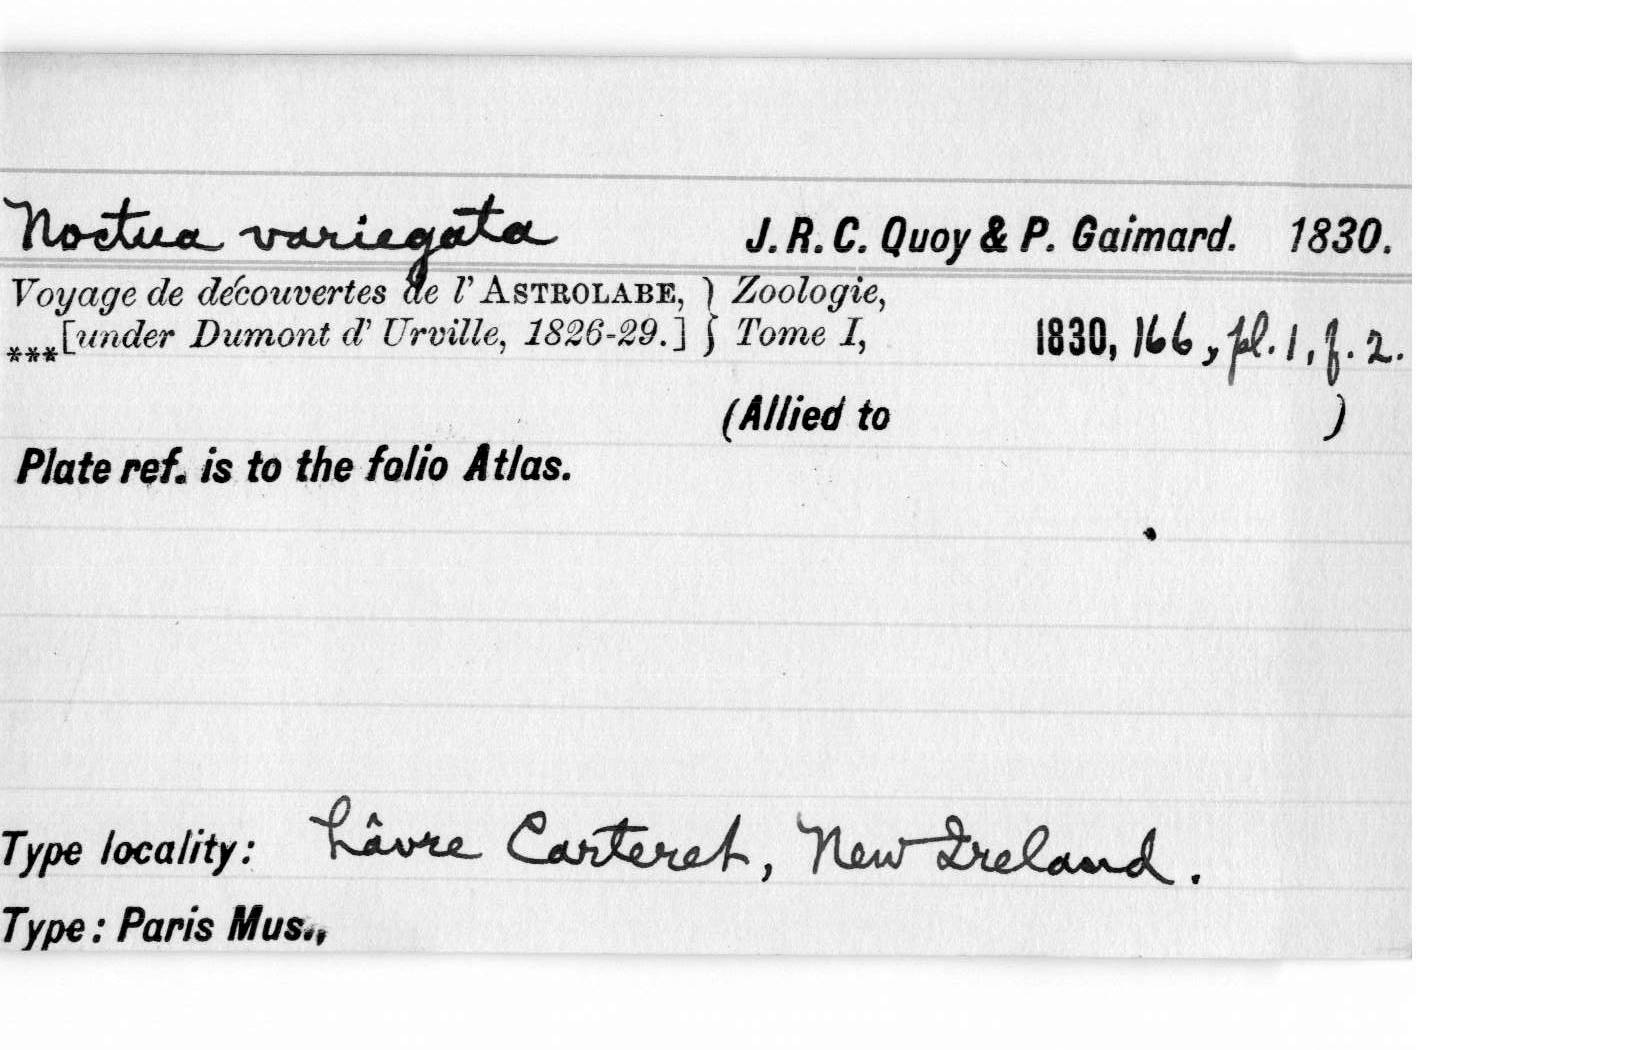 Noctua variegata J. R. C. Quoy & P. Gaimard. 1830.
Voyage de découvertes de l' ASTROLABE, } Zoologie,
***[under Dumont d' Urville, 1826-29.] } Tome I, 1830, 166, pl. 1, f. 2.
(Allied to )
Plate ref. is to the folio Atlas.
Type locality: hâvre Carteret, New Ireland.
Type: Paris Mus.,